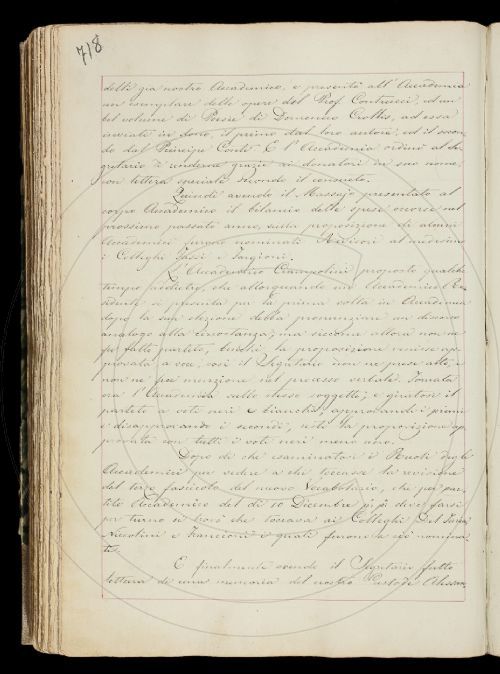 718
delli già nostro Accademico, e presentò all'Accademia
un esemplare delle opere del Prof. Contrucci, ed un
bel volume di Poesie di Domenico Ciollis, ad essa
inviati in dono, il primo dal loro autore, ed il secon-
do dal Principe Conti. E l'Accademia ordinò al Se-
gretario di renderne grazie ai donatori in suo nome,
con lettera speciale secondo il consueto.
Quindi avendo il Massajo presentato al
corpo Accademico il bilancio delle spese occorse nel
prossimo passato anno, sulla proposizione di alcuni
Accademici furono nominati Revisori al medesimo
i Colleghi e Targioni.
L'Accademico Ciampolini propose qualche
tempo addietro, che allorquando un Accademico Re-
sidente si presenta per la prima volta in Accademia
dopo la sua elezione debba pronunziare un discorso
analogo alla circostanza; ma siccome allora non ne
fu fatto partito, benchè la proposizione venisse ap-
provata a voce, così il Segretario non ne prese atto, e
non ne fece menzione nel processo verbale. Tornata
ora l'Accademia sullo stesso soggetto, e giratone il
partito a voti neri e bianchi, approvando i primi
e disapprovando i secondi, restò la proposizione ap-
provata con tutti i voti neri meno uno.
Dopo di che esaminatosi i Ruoli degli
Accademici per vedere a chi toccasse la revisione
del terzo fascicolo del nuovo Vocabolario, che per par-
tito Accademico del dì 10 Dicembre deve farsi
per turno si trovò che toccava ai Colleghi Del Furia
Niccolini e Franceschi i quali furono a ciò nomina-
ti.
E finalmente avendo il Segretario fatto
lettura di una memoria del nostro Custode Alessan-